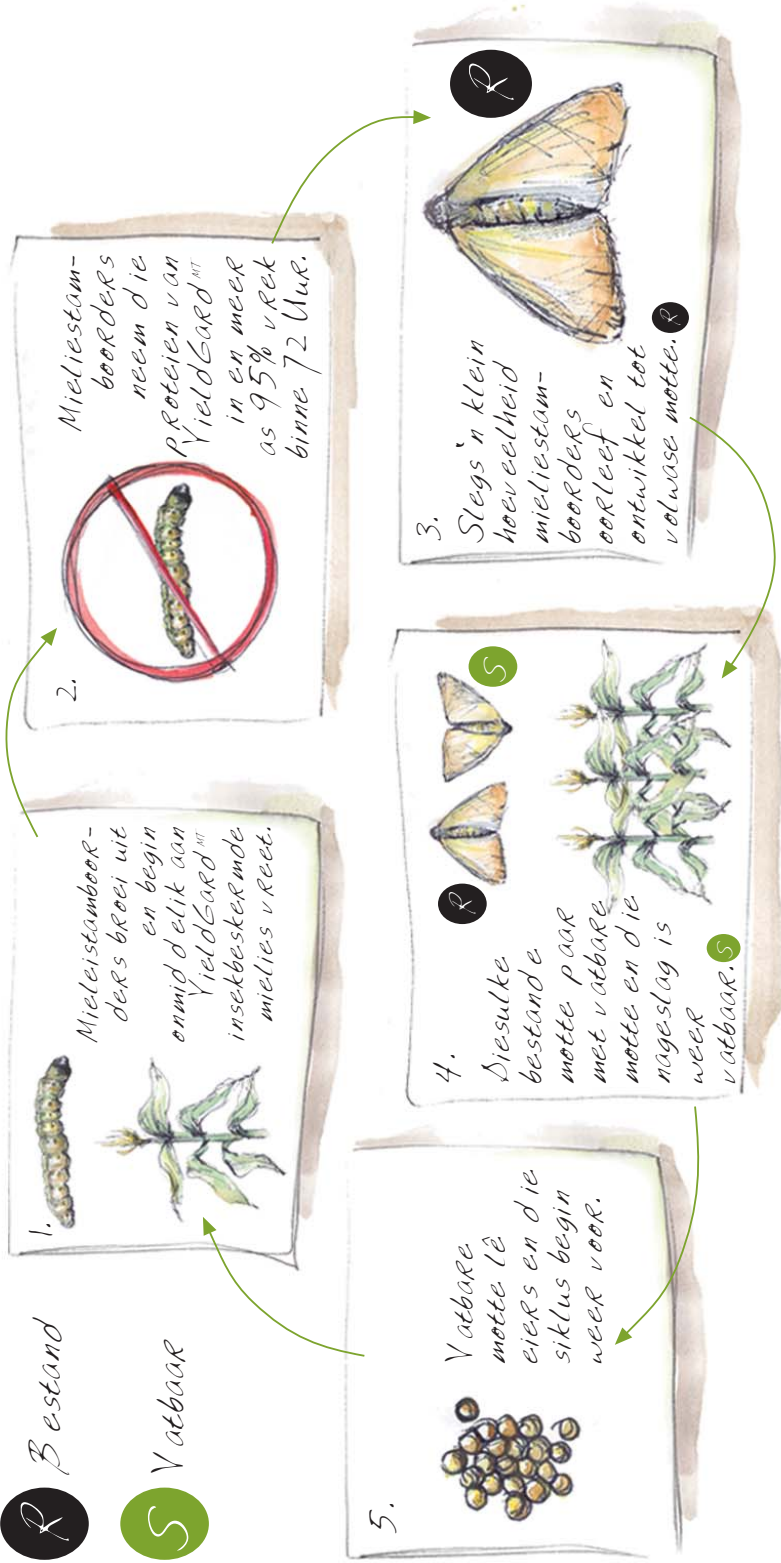 R Bestand
S Vatbaar
1.
Mieleistamboor-
ders broei uit
en begin
onmiddelik aan
YieldGard MT
insekbeskermde
mielies vreet.
2.
Mieliestam-
boorders
neem die
proteïen van
YieldGard MT
in en meer
as 95% vrek
binne 72 Uur.
3.
Slegs 'n klein
hoeveelheid
mieliestam-
boorders
oorleef en
ontwikkel tot
volwase motte. R
R
4.
Diesulke
bestande
motte paar
met vatbare
motte en die
nageslag is
weer
vatbaar. S
R
S
5.
Vatbare
motte lê
eiers en die
siklus begin
weer voor.